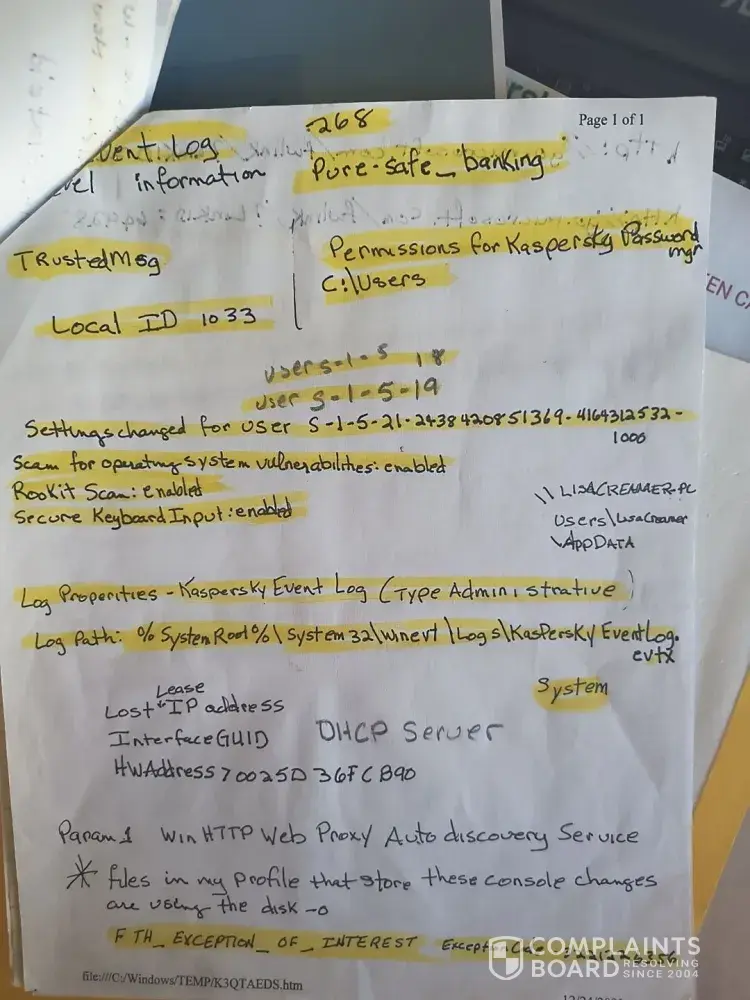 Page 1 of 1
-268
Event Log
Level information
Pure-safe_banking
TRustedMsg
Permissions for Kaspersky Password
mgr
C:\Users
Local ID 1033
users-1-5 18
user S-1-5-19
Settings changed for user S-1-5-21-2438420851369-4164312532-
1000
Scam for operating system vulnerabilities: enabled
RooKit Scan: enabled
Secure Keyboard Input: enabled
\\ LISACREAMER-PC
Users\LisaCreamer
\APPDATA
Log Properities - Kaspersky Event Log (Type Administrative)
Log Path: %SystemRoot%\System32\winevt\Logs\KasPersKy EventLog.
evtx
System
Lease
Lost * IP address
InterfaceGUID DHCP Server
HWAddress 70025D36FCB90
Param 1 WinHTTP Web Proxy Auto discovery Service
* files in my profile that store these console changes
are using the disk -o
FTH_EXCEPTION_OF_INTEREST Exception
file:///C:/Windows/TEMP/K3QTAEDS.htm
COMPLAINTS
BOARD RESOLVING
SINCE 2004